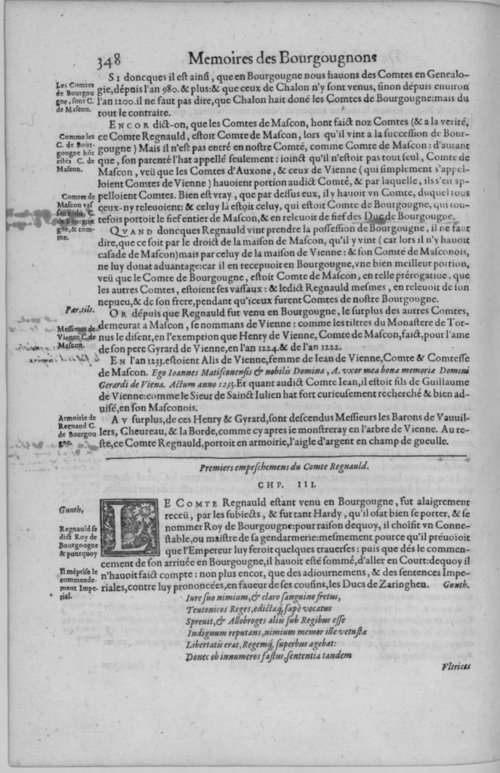 348 Memoires des Bourgougnons
SI doncques il est ainsi, que en Bourgougne nous hauons des Comtes en Genealo-
gie, dépuis l'an 980. & plus: & que ceux de Chalon n'y sont venus, sinon dépuis enuiron
l'an 1200. il ne faut pas dire, que Chalon hait doné les Comtes de Bourgougne: mais du
tout le contraire.
Les Comtes
de Bourgou
gne, sont C.
de Mascon.
ENCOR dict-on, que les Comtes de Mascon, hont faict noz Comtes (& a la verité,
ce Comte Regnauld, estoit Comte de Mascon, lors qu'il vint a la succession de Bour-
gougne) Mais il n'est pas entré en nostre Comté, comme Comte de Mascon: d'autant
que, son parenté l'hat appellé seulement: ioinct qu'il n'estoit pas tout seul, Comte de
Mascon, veü que les Comtes d'Auxone, & ceux de Vienne (qui simplement s'appel-
loient Comtes de Vienne) hauoient portion audict Comté, & par laquelle, ilss'en ap-
pelloient Comtes. Bien est vray, que par dessus eux, il y hauoit vn Comte, duquel tous
ceux-ny releuoient: & celuy là estoit celuy, qui estoit Comte de Bourgougne, qui tou-
tefois portoit le fief entier de Mascon, & en releuoit de fief des Dug de Bourgougne.
Comme les
C. de Bour-
gougne hõt
estés C. de
Mascon.
Comtes de
Mascon vas
C.
de Bourgon
gne, & com-
me.
QVAND doncques Regnauld vint prendre la possession de Bourgougne, il ne faut
dire, que ce soit par le droict de la maison de Mascon, qu'il y vint (car lors il n'y hauoit
casade de Mascon) mais par celuy de la maison de Vienne: & son Comté de Masconois,
ne luy donat aduantage: car il en recepuoit en Bourgougne, vne bien meilleur portion,
veü que le Comte de Bourgougne, estoit Comte de Mascon, en telle prérogatiue, que
les autres Comtes, estoient ses vassaux: & ledict Regnauld mesmes, en releuoit de son
nepueu, & de son frere, pendant qu'iceux furent Comtes de nostre Bourgougne.
OR dépuis que Regnauld fut venu en Bourgougne, le surplus des autres Comtes,
demeurat a Mascon, se nommans de Vienne: comme les tiltres du Monastere de Tor-
nus le disent, en l'exemption que Henry de Vienne, Comte de Mascon, faict, pour l'ame
de son pere Gyrard de Vienne, en l'an 1224. & de l'an 1222.
Par. tilt.
Messieurs de
Vienne C. de
Mascon.
EN l'an 1233. estoient Alis de Vienne, femme de Iean de Vienne, Comte & Comtesse
de Mascon. Ego Ioannes Matisconensis & nobilis Domina, A. vxor mea bona memoria Domini
Gerardi de Viena. Actum anno 1233. Et quant audict Comte Iean, il estoit fils de Guillaume
de Vienne: comme le Sieur de Sainct Iulien hat fort curieusement recherché & bien ad-
uisé, en son Masconois.
AV surplus, de ces Henry & Gyrard, sont descendus Messieurs les Barons de Vauuil-
lers, Cheureau, & la Borde, comme cy apres ie monstreray en l'arbre de Vienne. Au re-
ste, ce Comte Regnauld, portoit en armoirie, l'aigle d'argent en champ de gueulle.
Armoirie de
Regnaud C.
de Bourgou
gne.
Premiers empeschemens du Comte Regnauld.
CHP. III.
LE COMTE Regnauld estant venu en Bourgougne, fut alaigrement
receü, par les subiects, & fut tant Hardy, qu'il osat bien se porter, & se
nommer Roy de Bourgougne: pour raison dequoy, il choisit vn Conne-
stable, ou maistre de sa gendarmerie: mesmement pource qu'il préuoioit
que l'Empereur luy seroit quelques trauerses: puis que dés le commen-
cement de son arriuée en Bourgougne, il hauoit esté sommé, d'aller en Court: dequoy il
n'hauoit faict compte: non plus encor, que des adiournemens, & des sentences Impe-
riales, contre luy prononcées, en faueur de ses cousins, les Ducs de Zaringhen. Gunth.
Gunth.
Regnauld se
dict Roy de
Bourgougne
& pourquoy
Il méprise le
commende-
ment Impe-
rial.
Iure suo nimium, & claro sanguine fretus,
Teutonicos Reges, edictaq́; sæpè vocatus
Spreuit, & Allobroges aliis sub Regibus esse
Indignum reputans, nimium memor ille vetustæ
Libertatis erat, Regemq́; superbus agebat:
Donec ob innumeros fastus, sententia tandem
Vltrices